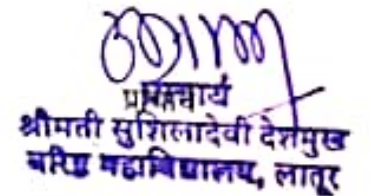 प्राचार्य
श्रीमती सुशिलादेवी देशमुख
वरिष्ठ महाविद्यालय, लातूर